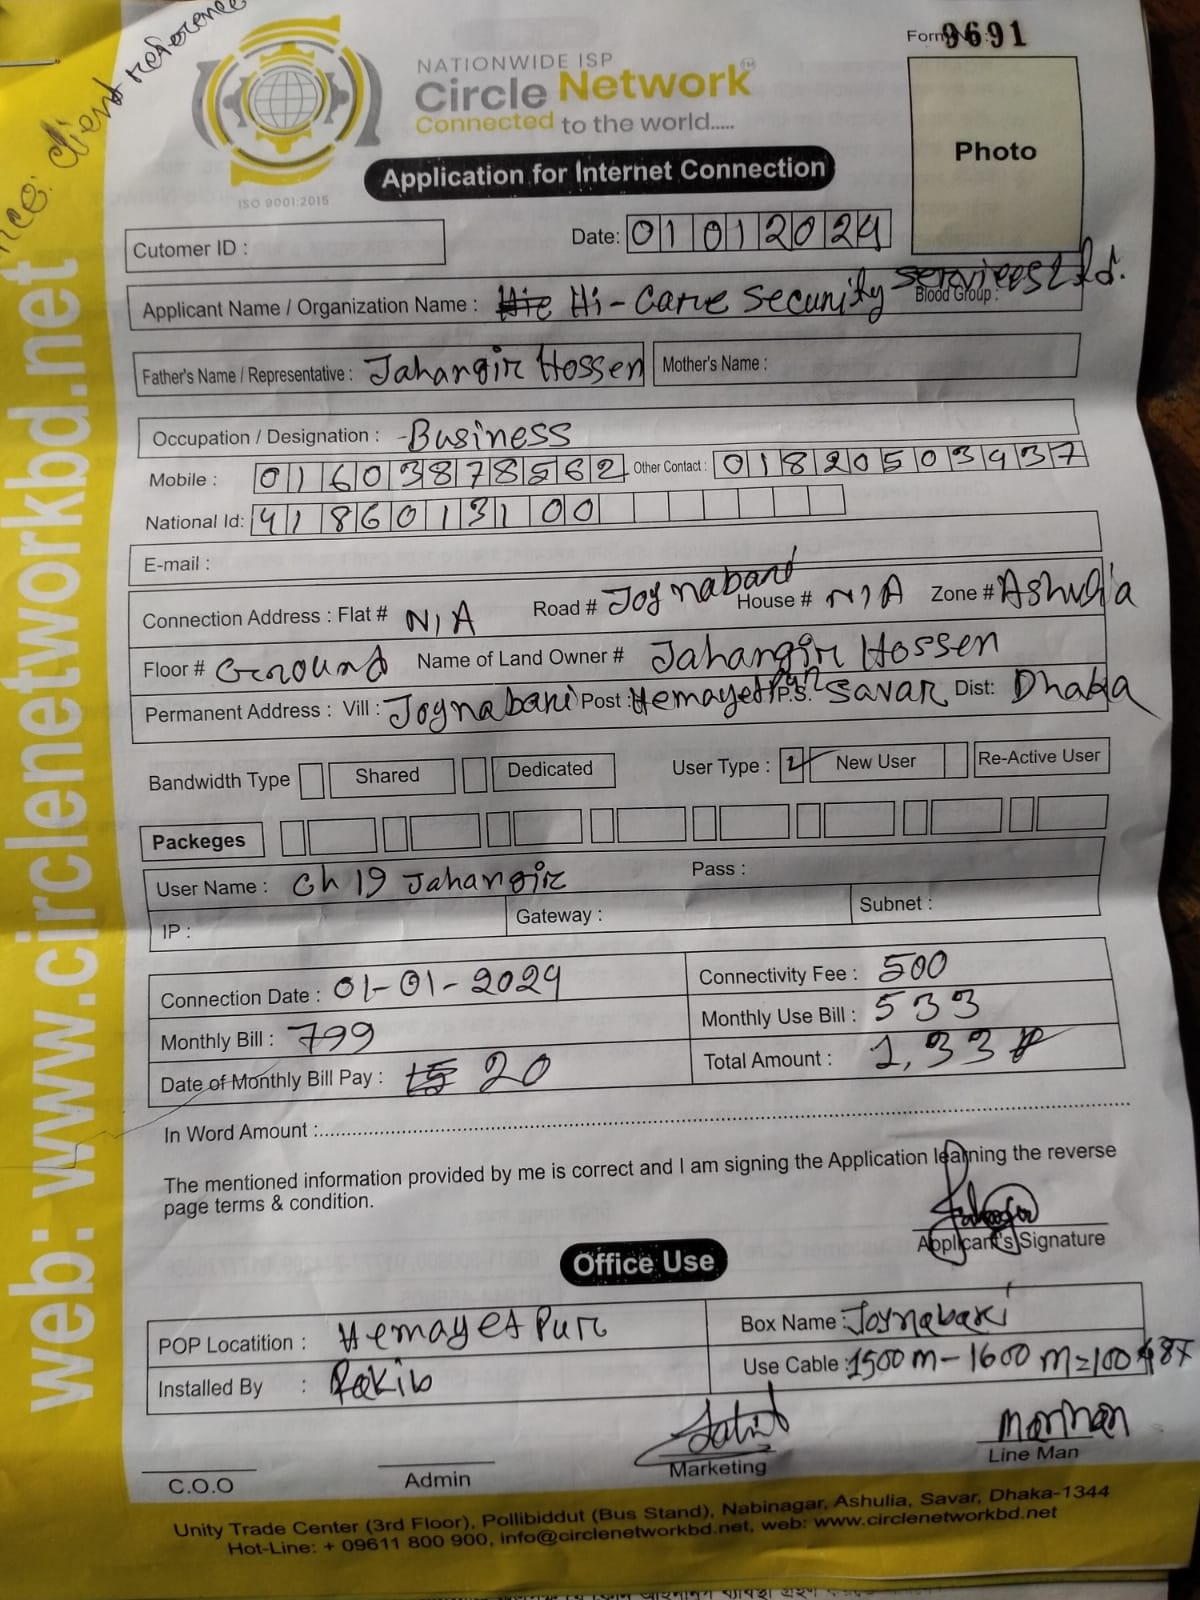 nce: client reference
Form No : 9691
NATIONWIDE ISP
Circle Network TM
Connected to the world.....
Application for Internet Connection
Photo
ISO 9001:2015
Cutomer ID :
Date: 01 01 2024
Applicant Name / Organization Name : Hic Hi-Care Security Services Ltd.
Blood Group :
Father's Name / Representative : Jahangir Hossen
Mother's Name :
Occupation / Designation : Business
Mobile : 01603878562 Other Contact : 01820503937
National Id: 4186013100
E-mail :
Connection Address : Flat # N/A Road # Joynabari House # N/A Zone # Ashulia
Floor # Ground Name of Land Owner # Jahangir Hossen
Permanent Address : Vill : Joynabari Post : Hemayetpur P.S. Savar Dist: Dhaka
Bandwidth Type Shared Dedicated User Type : New User Re-Active User
Packeges
User Name : Ch 19 Jahangir Pass :
IP : Gateway : Subnet :
Connection Date : 01-01-2024 Connectivity Fee : 500
Monthly Bill : 799 Monthly Use Bill : 533
Date of Monthly Bill Pay : 15 20 Total Amount : 1,33
In Word Amount :
The mentioned information provided by me is correct and I am signing the Application learning the reverse
page terms & condition.
Applicant's Signature
Office Use
POP Locatition : Hemayet Pur Box Name : Joynabari
Installed By : Rakib Use Cable : 1500 m - 1600 m = 100
C.O.O Admin Marketing Line Man
Unity Trade Center (3rd Floor), Pollibiddut (Bus Stand), Nabinagar, Ashulia, Savar, Dhaka-1344
Hot-Line: + 09611 800 900, info@circlenetworkbd.net, web: www.circlenetworkbd.net
web: www.circlenetworkbd.net